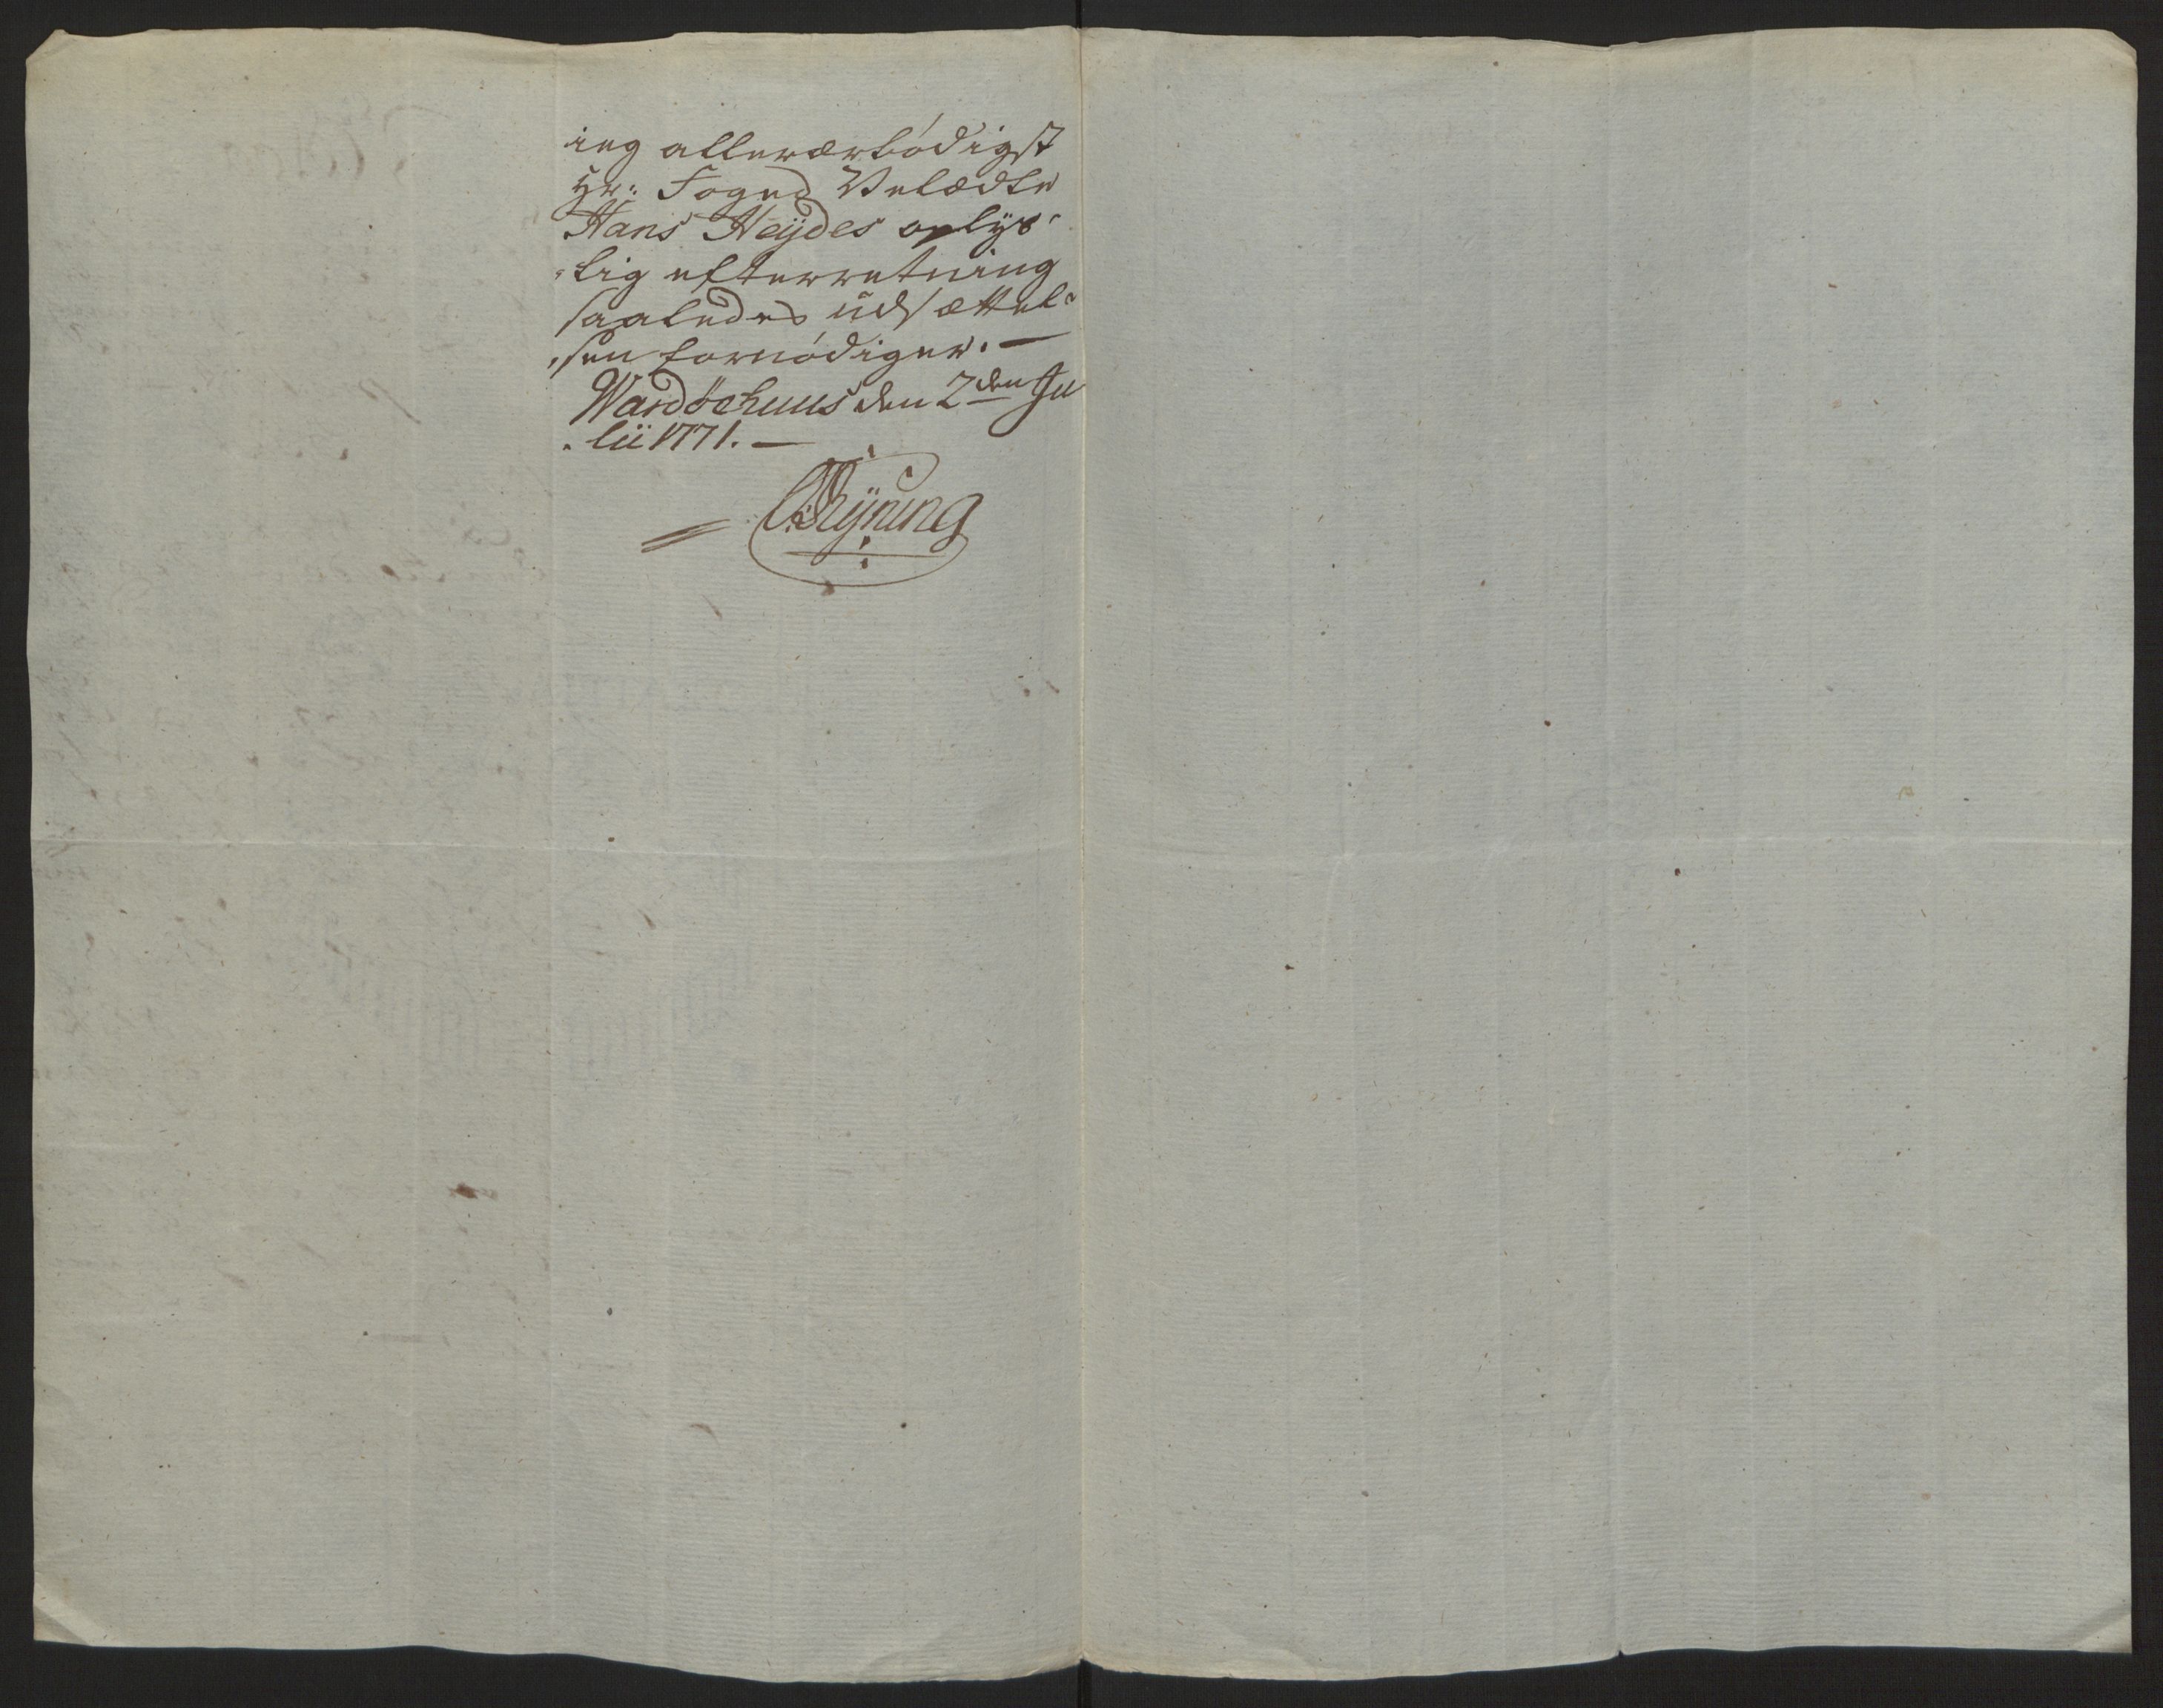 ieg allerærbödigst
Hr: Foged Velædle
Hans Heÿdes oplÿs-
-lig efterretning
saaledes udsættel-
-sen fornödiger. -
Wardöehuus den 2den Ju
-lii 1771. -